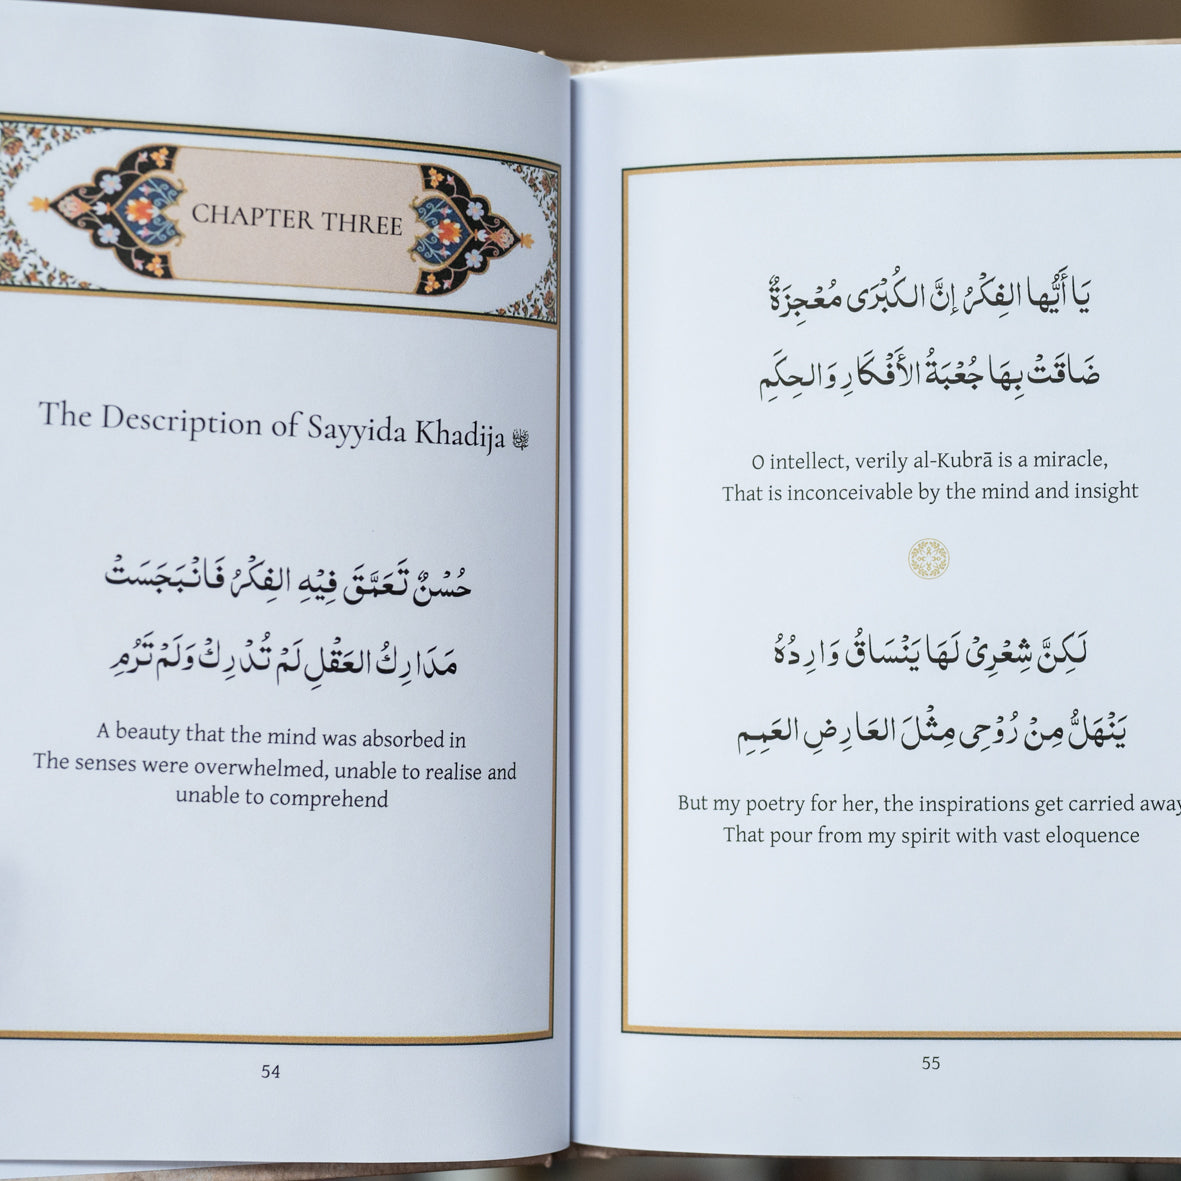 CHAPTER THREE
The Description of Sayyida Khadija
حُسْنٌ تَعَمَّقَ فِيْهِ الفِكْرُ فَانْبَجَسَتْ
مَدَارِكُ العَقْلِ لَمْ تُدْرِكْ وَلَمْ تَرُمِ
A beauty that the mind was absorbed in
The senses were overwhelmed, unable to realise and
unable to comprehend
54
يَا أَيُّها الفِكْرُ إنَّ الكُبْرَى مُعْجِزَةٌ
ضَاقَتْ بِهَا جُعْبَةُ الأَفْكَارِ وَالحِكَمِ
O intellect, verily al-Kubrā is a miracle,
That is inconceivable by the mind and insight
لَكِنَّ شِعْرِيْ لَهَا يَنْسَاقُ وَارِدُهُ
يَنْهَلُّ مِنْ رُوْحِى مِثْلَ العَارِضِ العَمِمِ
But my poetry for her, the inspirations get carried away
That pour from my spirit with vast eloquence
55